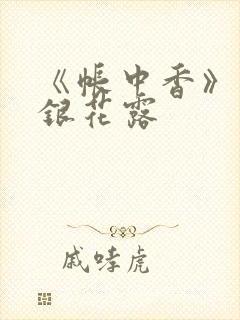 《帐中香》
银花露
戚哮虎